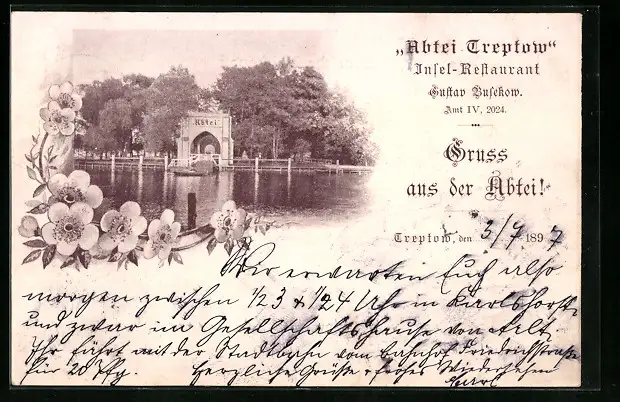 „Abtei Treptow“
Insel-Restaurant
Gustav Busekow.
Amt IV, 2024.
Abtei
Gruss
aus der Abtei!
Treptow, den 3/7 1897
Wir erwarten Euch also
morgen zwischen 1/2 3 & 1/2 4 Uhr in Karlshorst
und zwar im Gesellschaftshause von
Ihr fährt mit der Stadtbahn vom Bahnhof Friedrichstraße
für 20 Pfg. Herzliche Grüße + frohes Wiedersehen
Karl